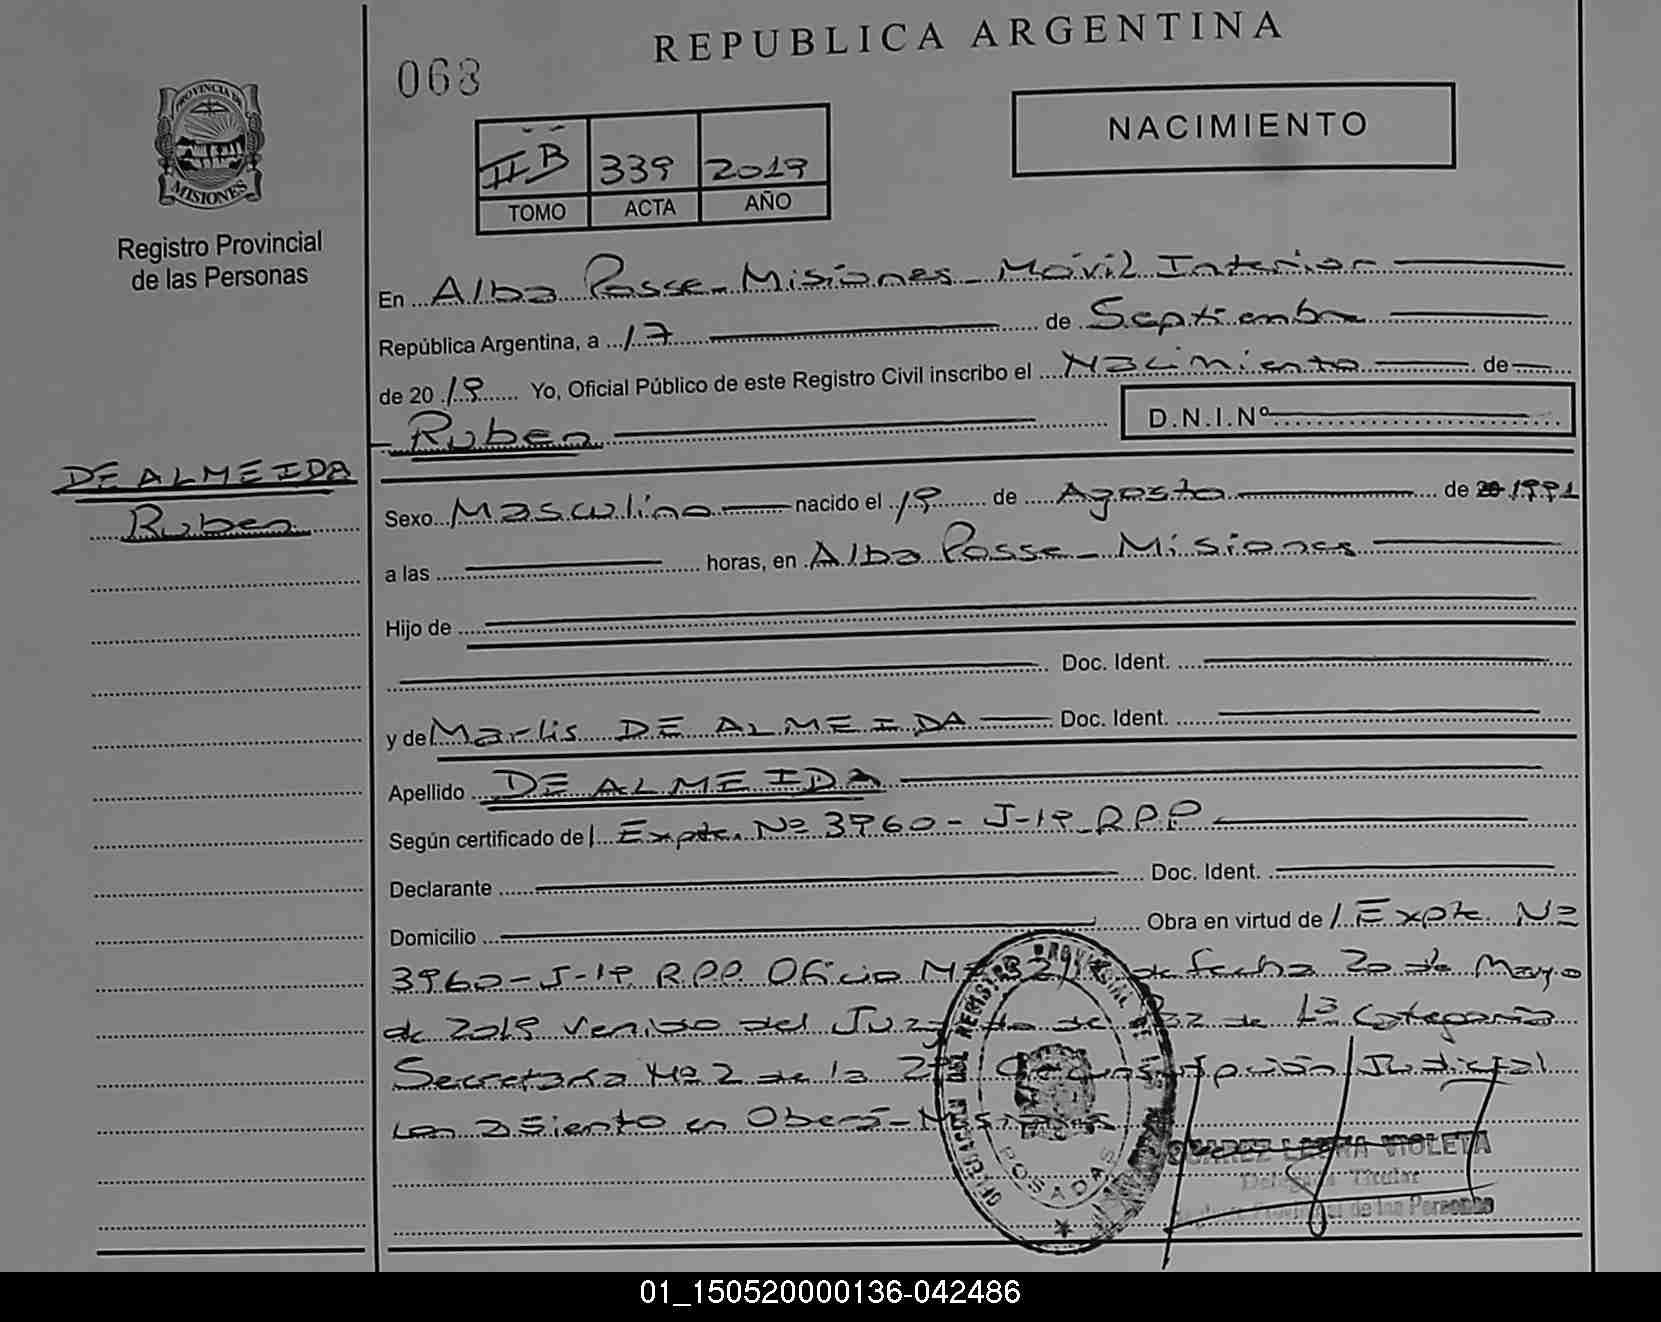 REPUBLICA ARGENTINA
068
NACIMIENTO
PROVINCIA DE MISIONES
Registro Provincial
de las Personas
II B 339 2019
TOMO ACTA AÑO
En Alba Posse - Misiones - Móvil Interior
República Argentina, a 17 de Septiembre
de 2019 Yo, Oficial Público de este Registro Civil inscribo el Nacimiento de
Ruben D.N.I.Nº
DE ALMEIDA
Ruben
Sexo Masculino nacido el 19 de Agosto de 20 1991
a las horas, en Alba Posse - Misiones
Hijo de
Doc. Ident.
y de Marlis DE ALMEIDA Doc. Ident.
Apellido DE ALMEIDA
Según certificado de Expte. Nº 3960-J-19 R.P.P
Declarante Doc. Ident.
Domicilio Obra en virtud de Expte. Nº
3960-J-19 R.P.P. Oficio de fecha 20 de Mayo
de 2019 venido del Juzgado de Paz de 1ª Categoria
Secretaría Nº 2 de la 2ª Circunscripción Judicial
con asiento en Oberá - Misiones
POSADAS
VIOLETA
Delegada Titular
Registro Provincial de las Personas
01_150520000136-042486